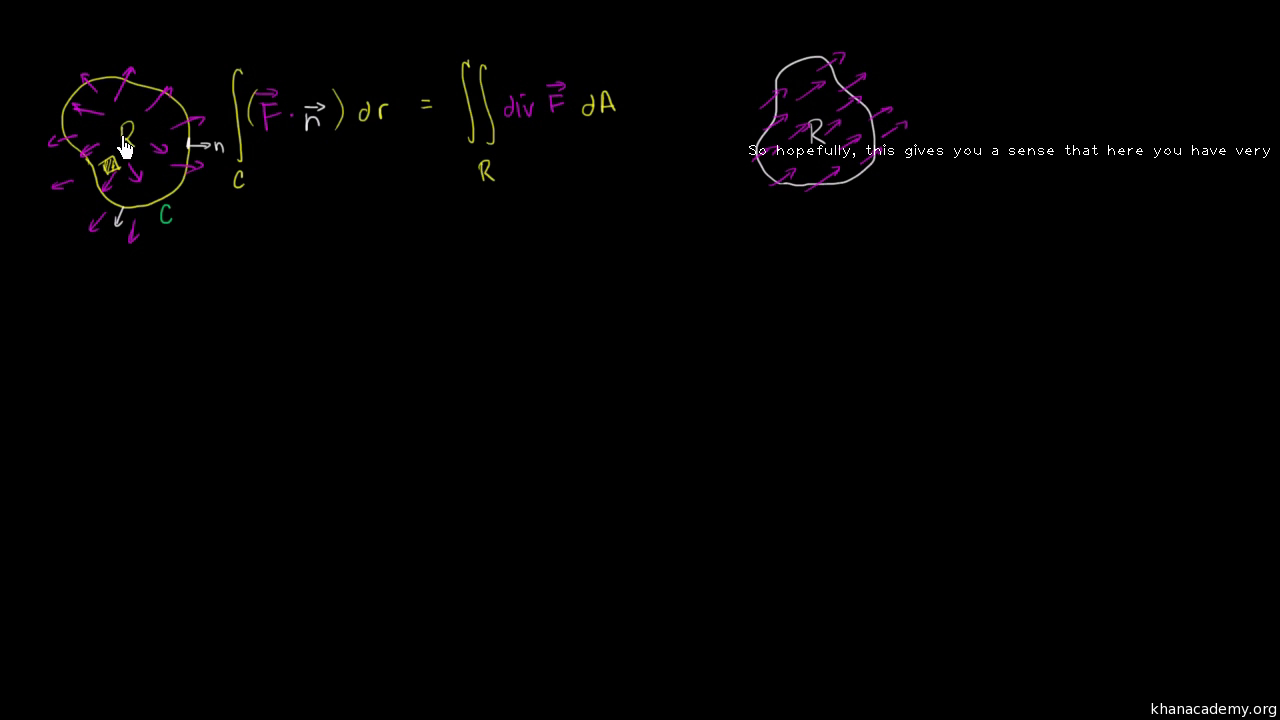 R
n
C
∫_C (F⃗ · n⃗) dr = ∬_R div F⃗ dA
R
So hopefully, this gives you a sense that here you have very
khanacademy.org